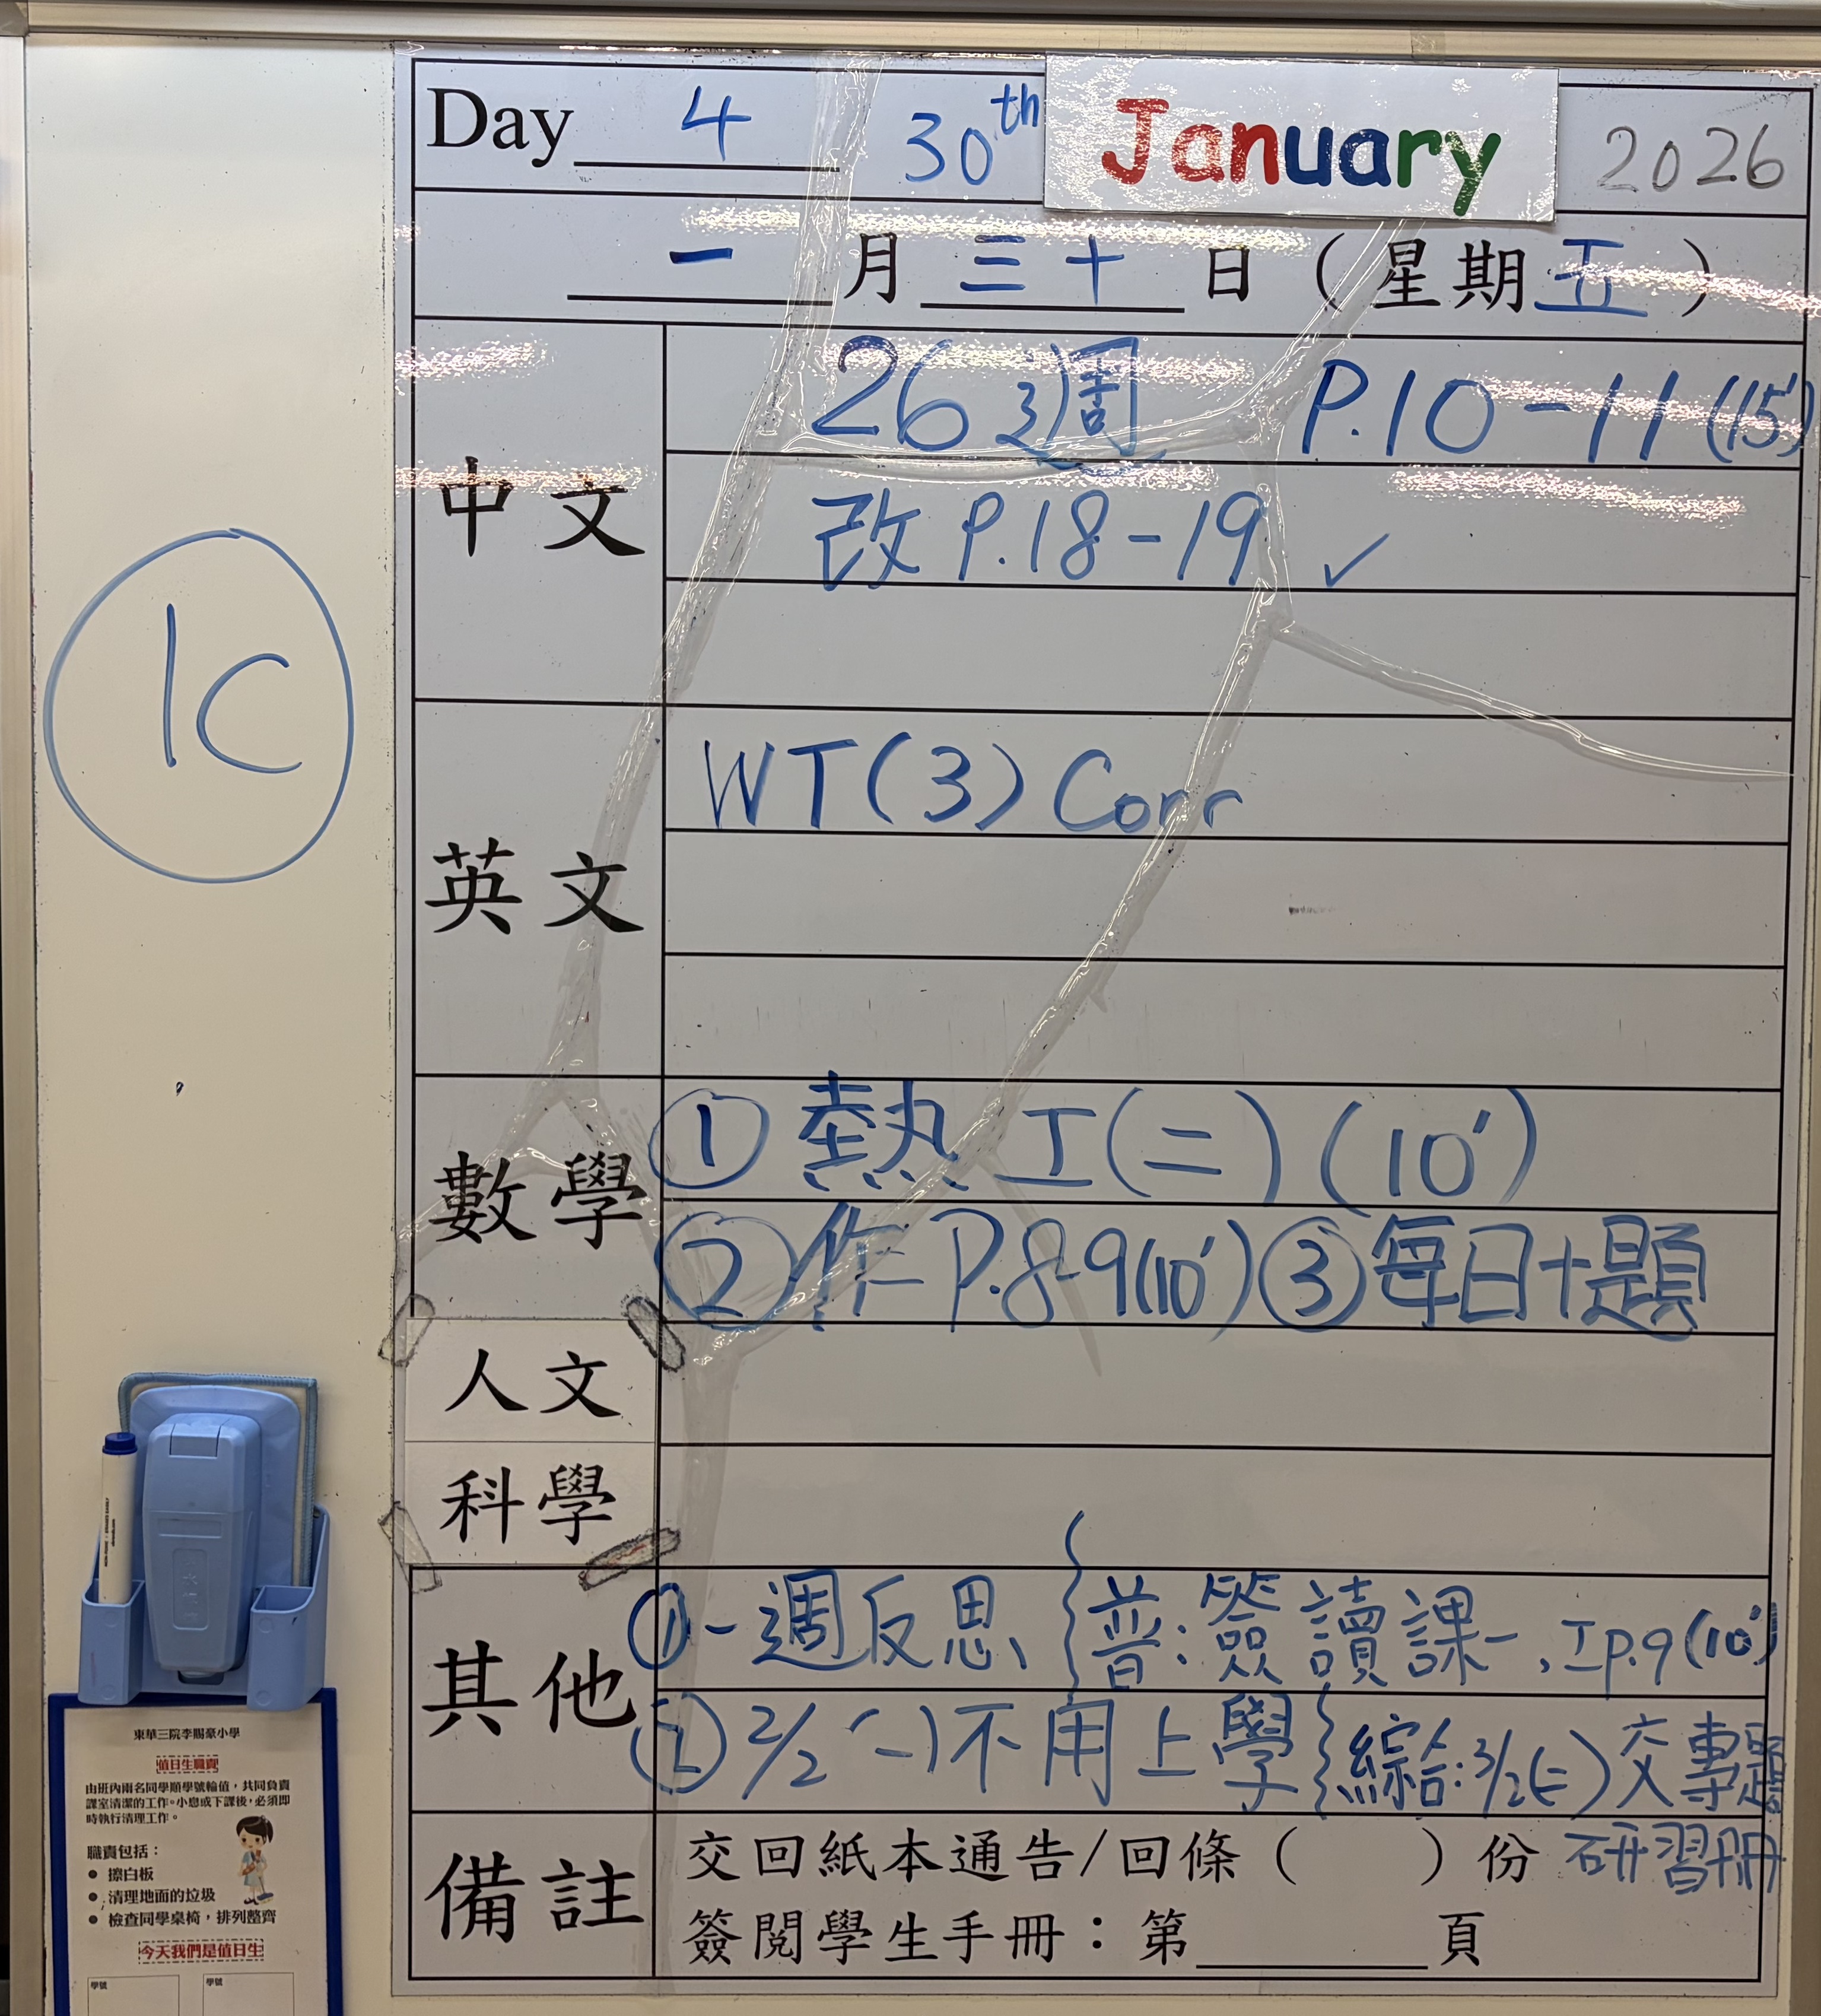 Day 4 30th January 2026
一 月 三十 日 ( 星期 五 )
中文
26週 P.10-11 (15')
改 P.18-19 ✓
1C
英文
WT(3) Corr
數學
① 熱工(二) (10')
② 作 P.8-9(10') ③ 每日十題
人文
科學
其他
① 一週反思、 普:簽讀課一、工p.9(10')
② 2/2 (一)不用上學 綜合:3/2(二)交專題
研習冊
備註
交回紙本通告/回條( )份
簽閱學生手冊:第 頁
東華三院李賜豪小學
值日生職責
由班內兩名同學順學號輪值,共同負責
課室清潔的工作。小息或下課後,必須即
時執行清理工作。
職責包括:
● 擦白板
● 清理地面的垃圾
● 檢查同學桌椅,排列整齊
今天我們是值日生
學號 學號